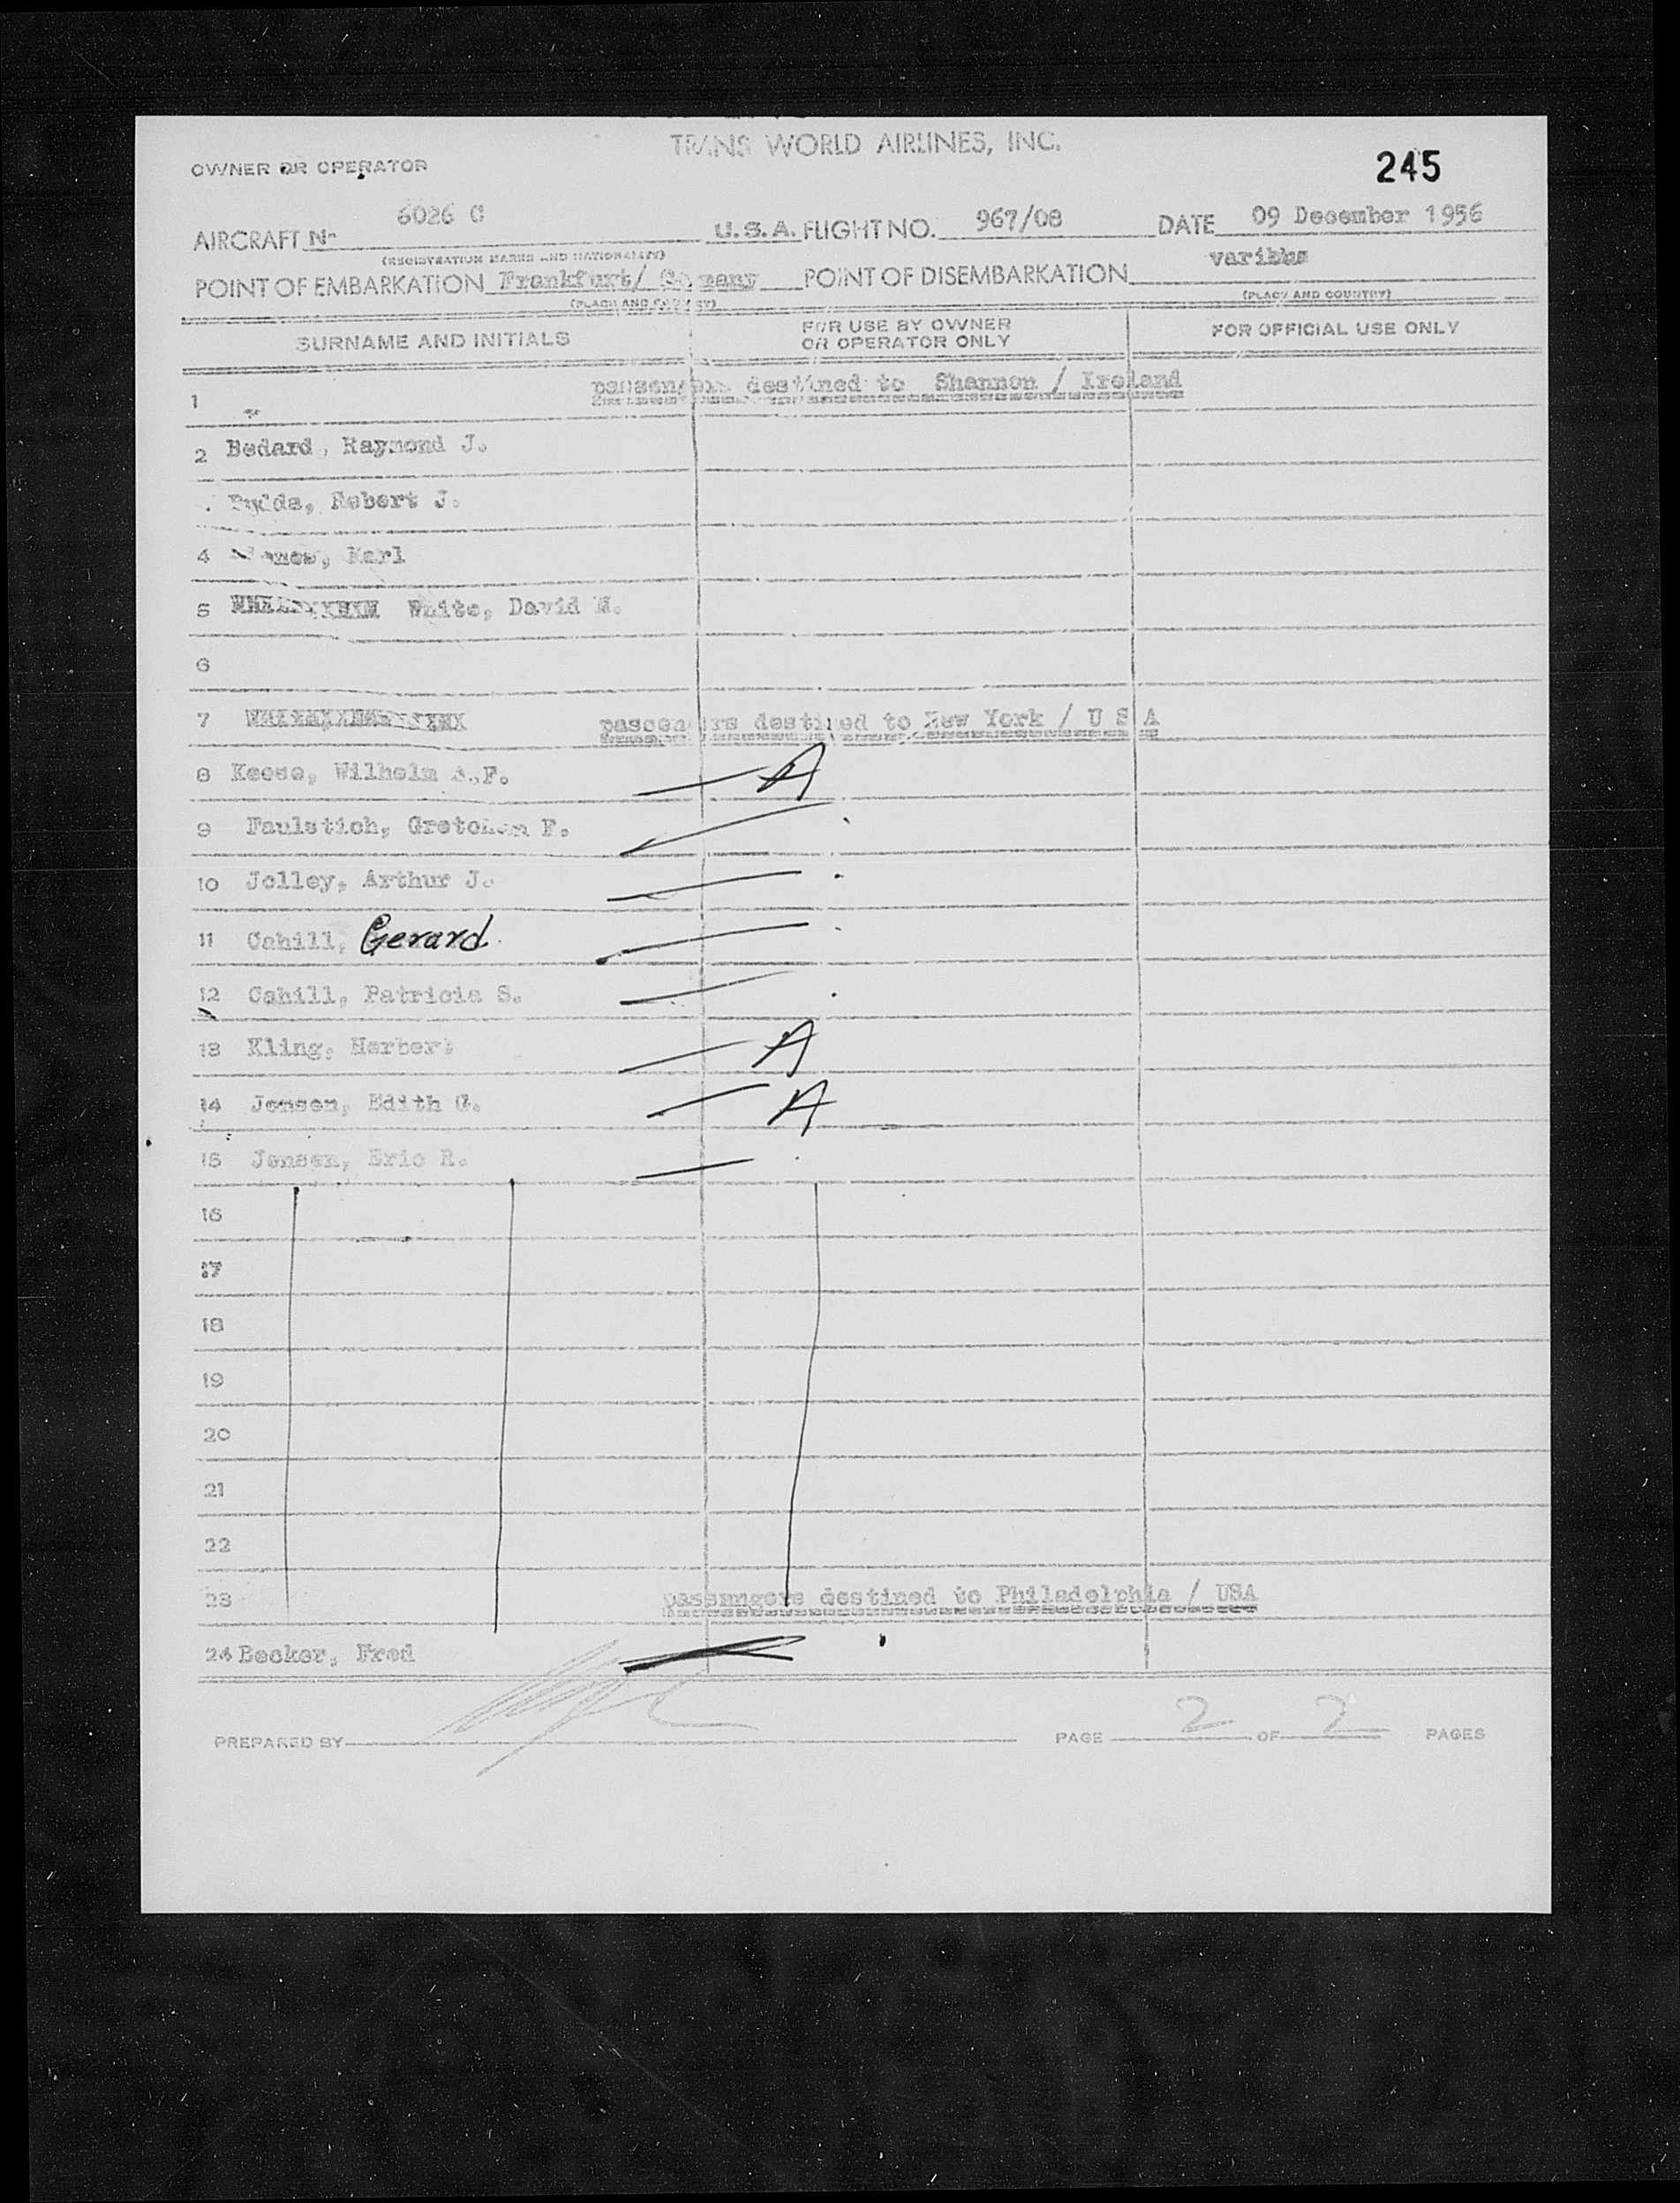 TRANS WORLD AIRLINES, INC.
OWNER OR OPERATOR
245
AIRCRAFT Nº 6026 C U.S.A. FLIGHT NO. 967/08 DATE 09 December 1956
(REGISTRATION MARKS AND NATIONALITY)
POINT OF EMBARKATION Frankfurt/ Germany POINT OF DISEMBARKATION
(PLACE AND COUNTRY) (PLACE AND COUNTRY)
SURNAME AND INITIALS FOR USE BY OWNER OR OPERATOR ONLY FOR OFFICIAL USE ONLY
1 passengers destined to Shannon / Ireland
2 Bedard, Raymond J.
Robert J.
4 Karl
5 White, David M.
6
7 passengers destined to New York / U S A
8 Keese, Wilhelm A.F. A
9 Faulstich, Gretchen F.
10 Jolley, Arthur J.
11 Cahill, Gerard
12 Cahill, Patricia S.
13 Kling, Herbert A
14 Jensen, Edith G. A
15 Jensen, Eric R.
16
17
18
19
20
21
22
23 passengers destined to Philadelphia / USA
24 Becker, Fred
PREPARED BY PAGE 2 OF 2 PAGES